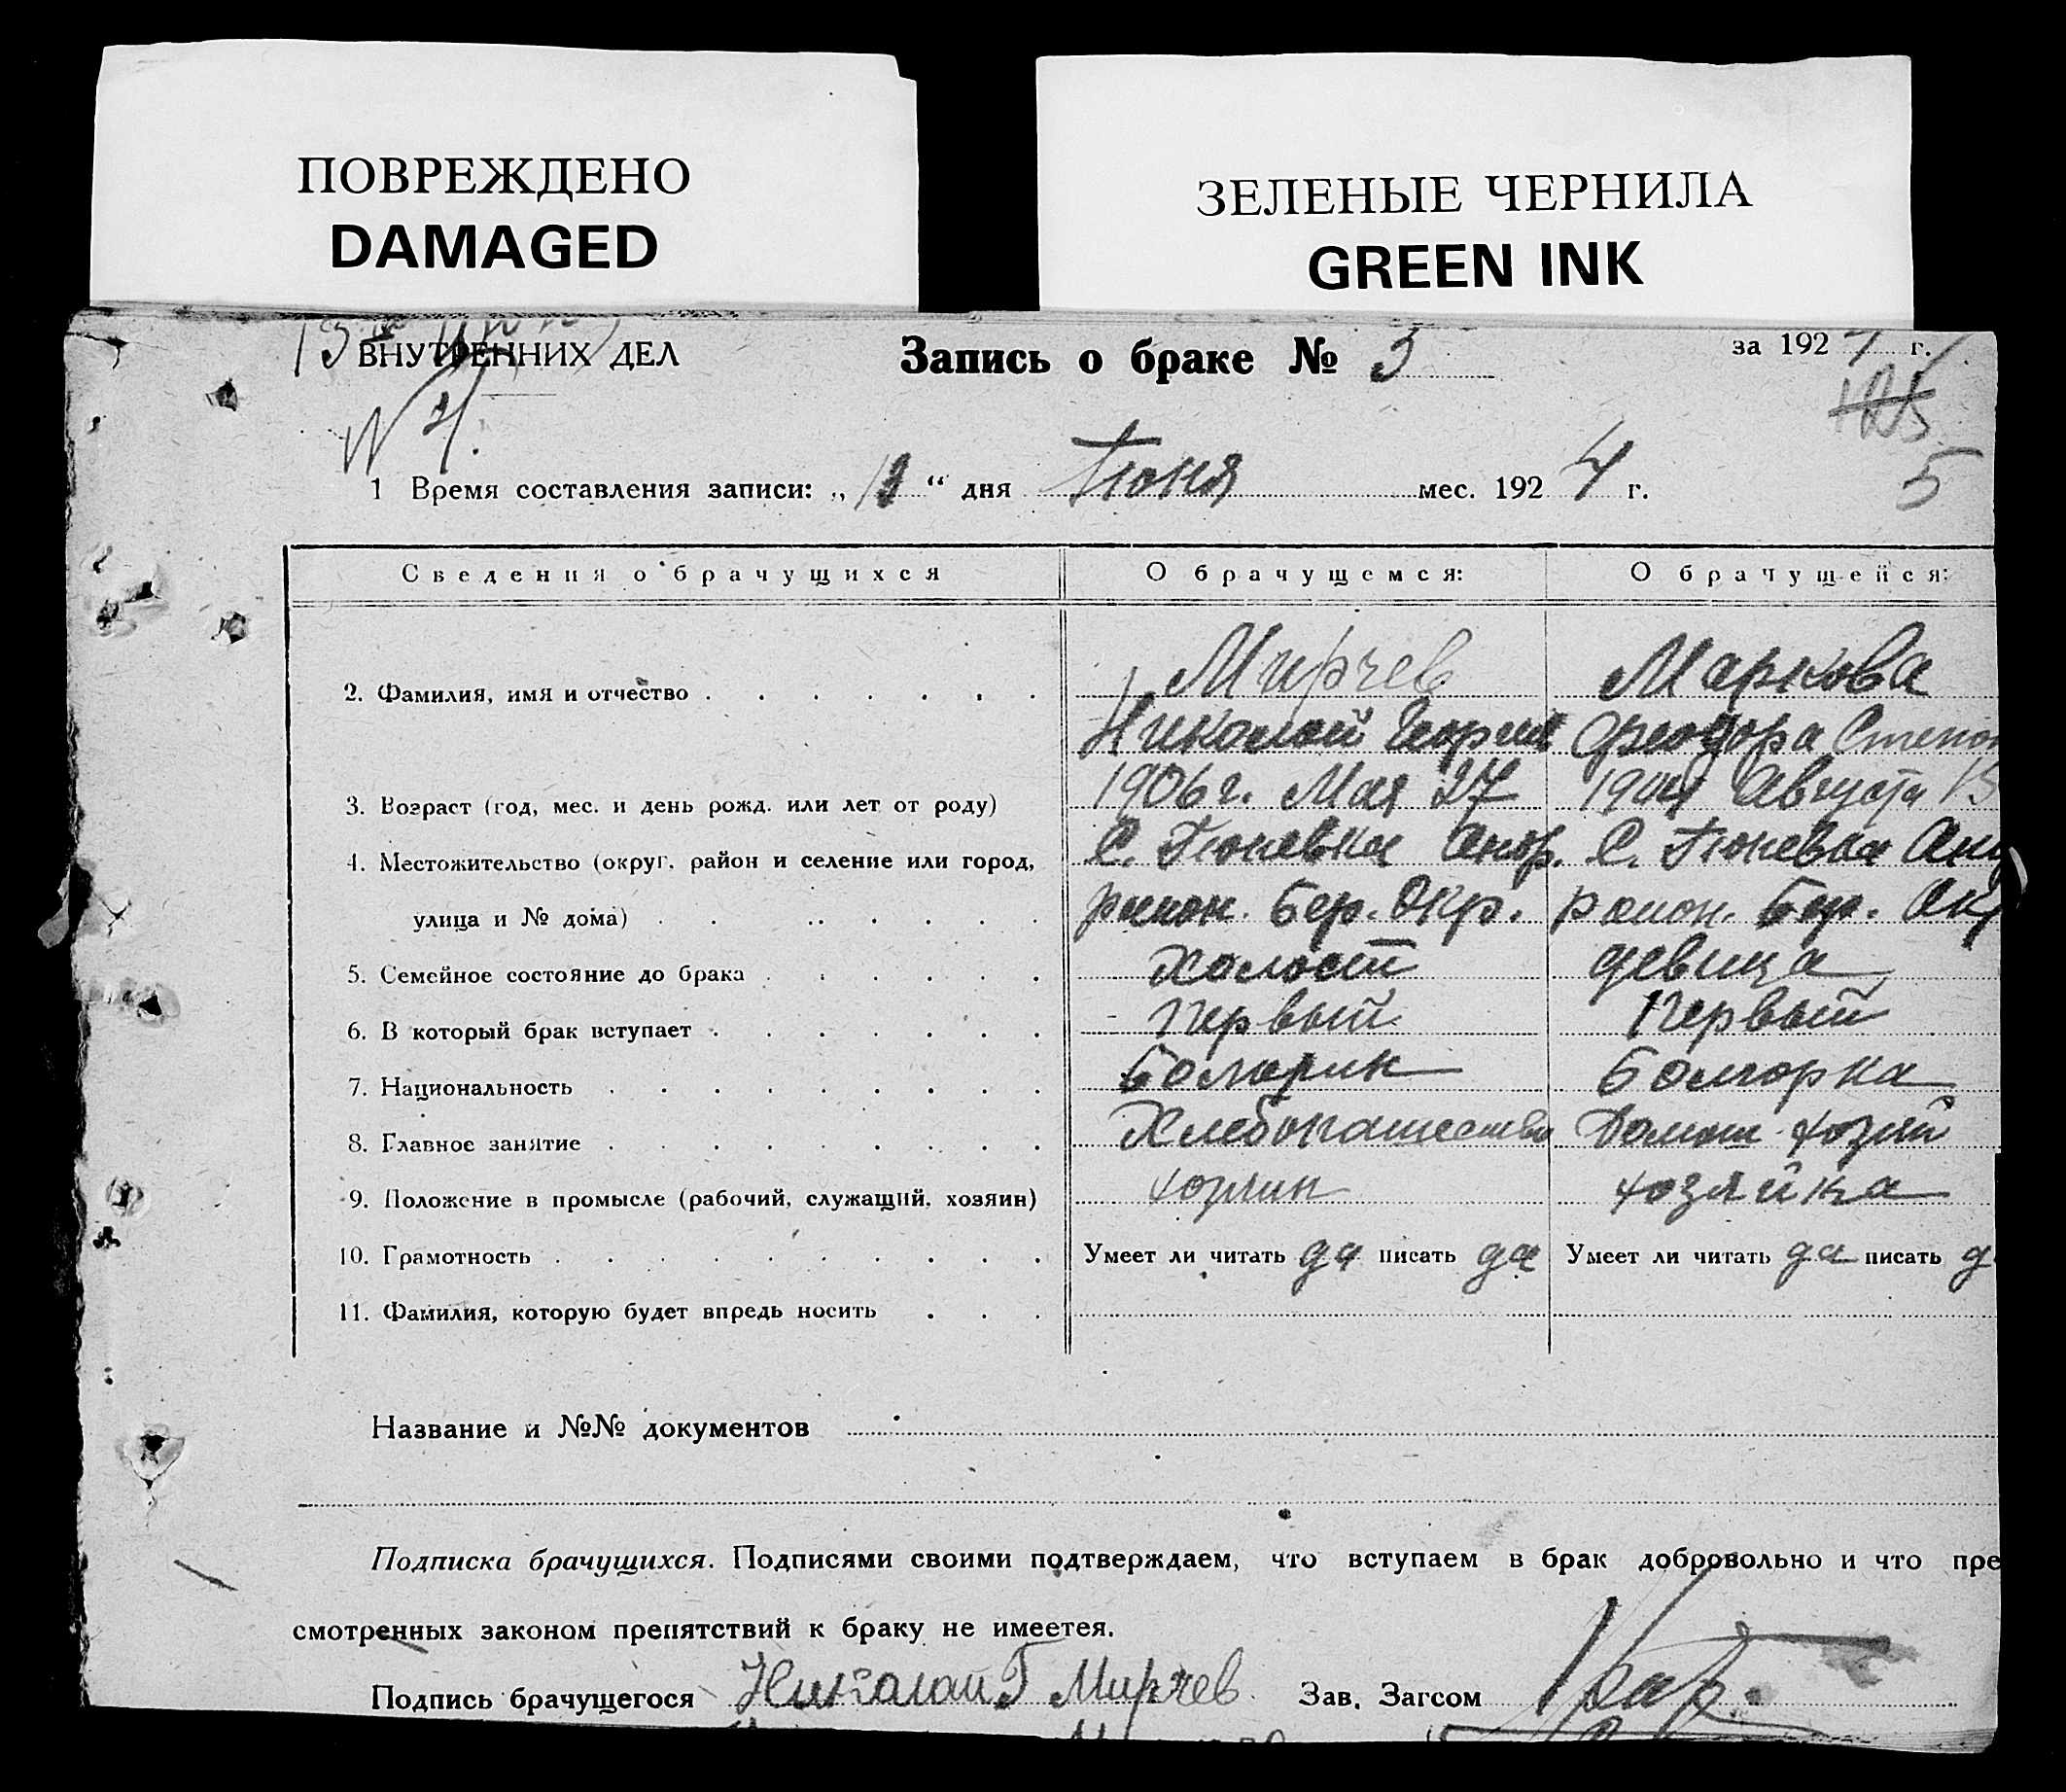 ПОВРЕЖДЕНО
DAMAGED
ЗЕЛЕНЫЕ ЧЕРНИЛА
GREEN INK
ВНУТРЕННИХ ДЕЛ
Запись о браке № 3
за 1924 г.
N 4.
5
1 Время составления записи: „ “ дня Июня мес. 1924 г.
Сведения о брачущихся О брачущемся: О брачущейся:
2. Фамилия, имя и отчество Мирчев Маркова
Николай Георгий Феодора Степан
3. Возраст (год, мес. и день рожд. или лет от роду) 1906 г. Мая 27 1904 Августа 15
4. Местожительство (округ, район и селение или город, С. Гюневка С. Гюневка
улица и № дома) район. Бер. Окр. район. Бер. Окр
5. Семейное состояние до брака Холост девица
6. В который брак вступает Первый Первый
7. Национальность Болгарин Болгарка
8. Главное занятие Хлебопашество Домаш. хозяй
9. Положение в промысле (рабочий, служащий, хозяин) хозяин хозяйка
10. Грамотность Умеет ли читать да писать да Умеет ли читать да писать д
11. Фамилия, которую будет впредь носить
Название и №№ документов
Подписка брачущихся. Подписями своими подтверждаем, что вступаем в брак добровольно и что пре
смотренных законом препятствий к браку не имеется.
Подпись брачущегося Николай Г Мирчев Зав. Загсом